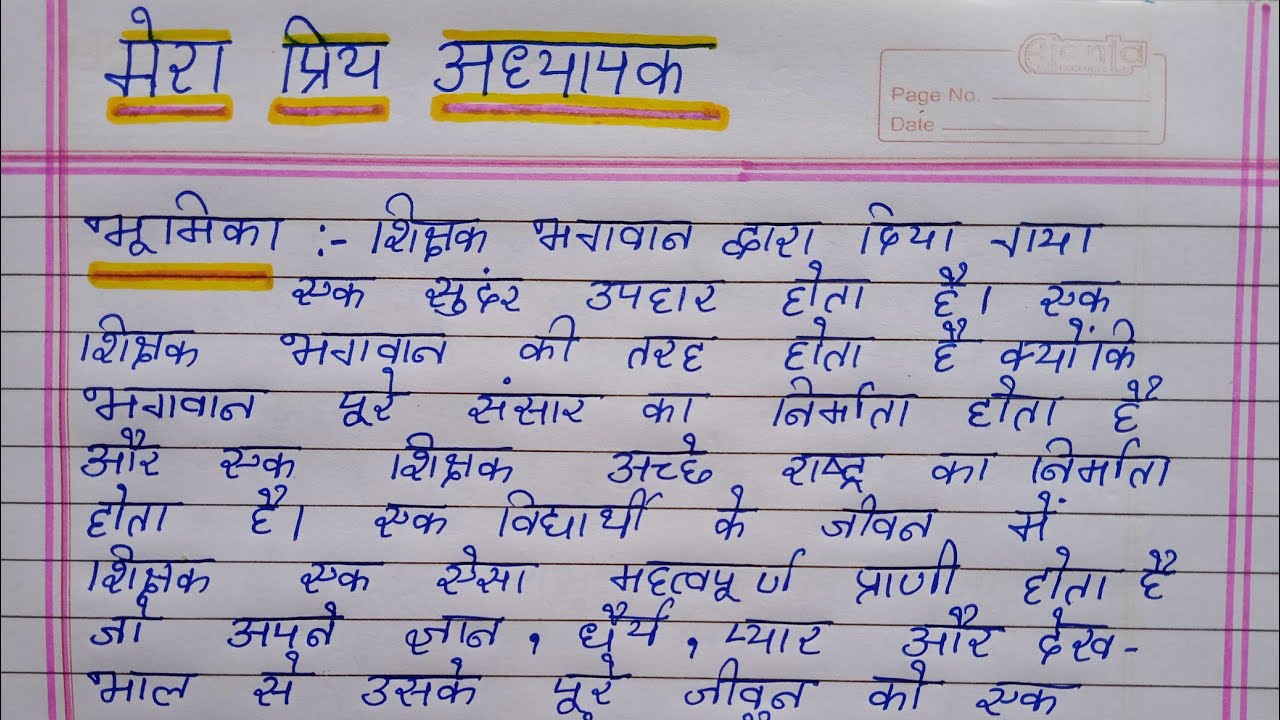 मेरा प्रिय अध्यापक
Page No.
Date
भूमिका :- शिक्षक भगवान द्वारा दिया गया
एक सुदंर उपहार होता है। एक
शिक्षक भगवान की तरह होता है क्योंकि
भगवान पूरे संसार का निर्माता होता है
और एक शिक्षक अच्छे राष्ट्र का निर्माता
होता है। एक विद्यार्थी के जीवन में
शिक्षक एक ऐसा महत्वपूर्ण प्राणी होता है
जो अपने ज्ञान, धैर्य, प्यार और देख-
भाल से उसके पूरे जीवन को एक